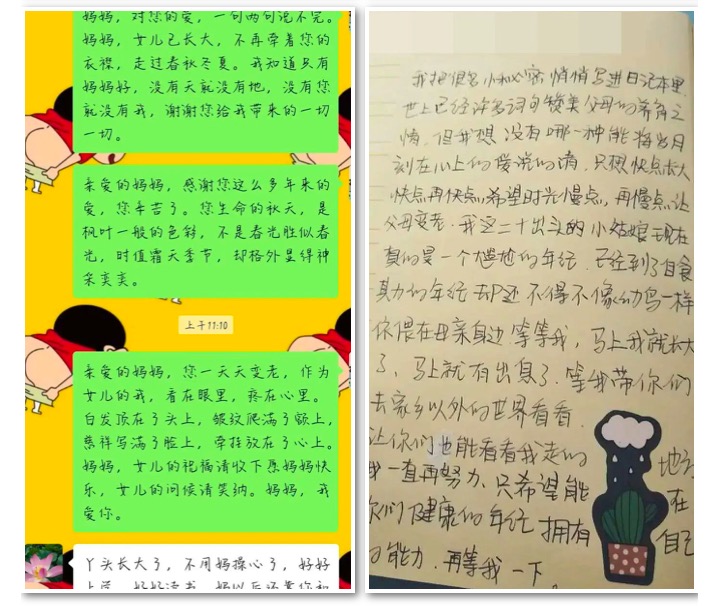 妈妈，对您的爱，一句两句说不完。
妈妈，女儿已长大，不再牵着您的
衣襟，走过春秋冬夏。我知道只有
妈妈好，没有天就没有地，没有您
就没有我，谢谢您给我带来的一切
一切。
亲爱的妈妈，感谢您这么多年来的
爱，您辛苦了。您生命的秋天，是
枫叶一般的色彩，不是春光胜似春
光，时值霜天季节，却格外显得神
采奕奕。
上午11:10
亲爱的妈妈，您一天天变老，作为
女儿的我，看在眼里，疼在心里。
白发顶在了头上，皱纹爬满了额上，
慈祥写满了脸上，牵挂放在了心上。
妈妈，女儿的祝福请收下愿妈妈快
乐，女儿的问候请笑纳。妈妈，我
爱你。
丫头长大了，不用妈操心了，好好
上学，好好读书，妈以后还靠你和
我把很多小秘密悄悄写进日记本里
世上已经许多词句赞美父母的养育之
情，但我想没有哪一种能将岁月
刻在心上的爱说的清，只想快点长大
快点再快点，希望时光慢点，再慢点让
父母变老，我这二十出头的小姑娘现在
真的是一个尴尬的年纪，已经到了自食
其力的年纪却还不得不像幼鸟一样
依偎在母亲身边等等我，马上我就长大
了，马上就有出息了，等我带你们
去家乡以外的世界看看，
让你们也能看看我走的地方
我一直再努力，只希望能在
你们健康的年纪拥有自己
的能力，再等我一下。